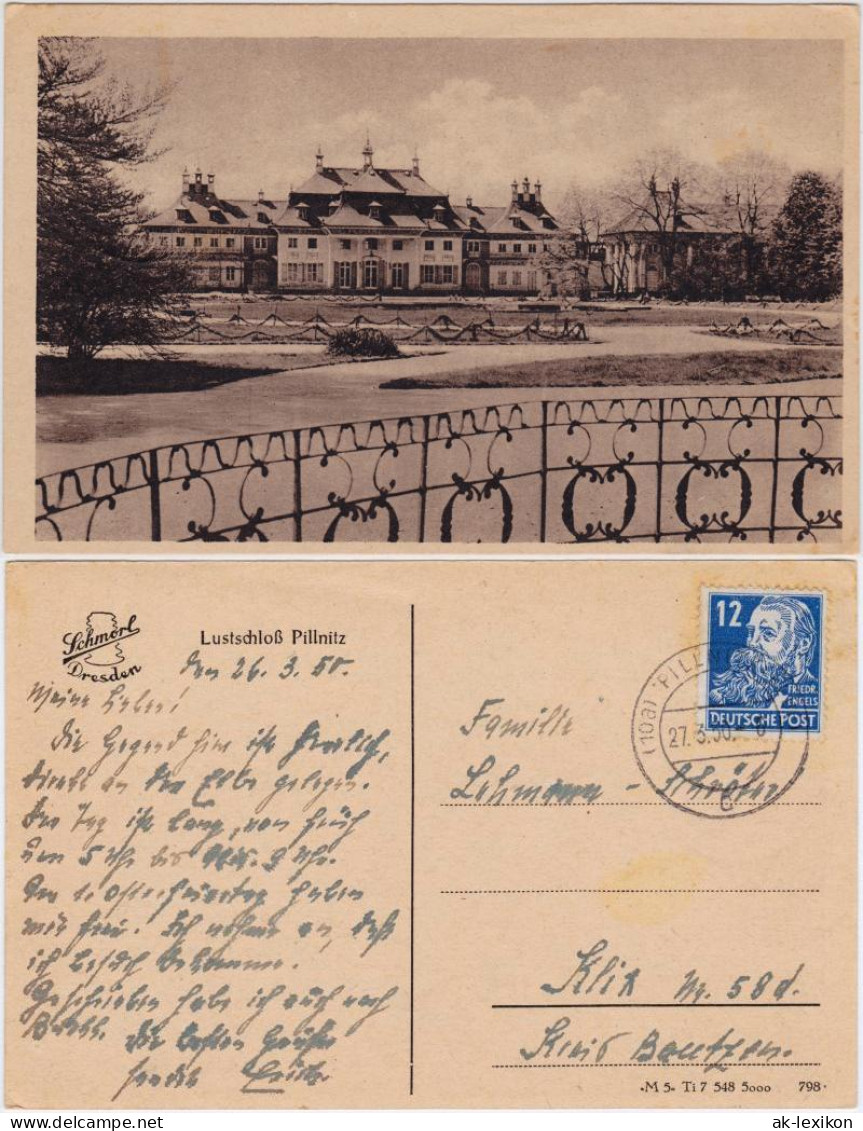 Schmorl
Dresden
Lustschloß Pillnitz
den 26. 3. 50.
Meine Lieben!
Die Gegend hier ist herrlich,
direkt an der Elbe gelegen.
Der Tag ist lang, von früh
um 5 Uhr bis 9 Uhr.
Den 1. Osterfeiertag haben
wir frei. Ich nehme an, daß
ich Besuch bekomme.
Geschrieben habe ich auch nach
Die besten Grüße
sendet
12
FRIEDR.
ENGELS
DEUTSCHE POST
(10a) PILLN
27.3.50.-8
Familie
Lehmann - Schröter
Klix Nr. 58d.
Kreis Bautzen.
•M 5• Ti 7 548 5000 798•
oldthing.com
ak-lexikon